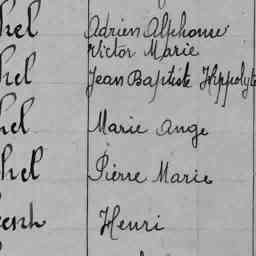 hel Adrien Alphonse
Victor Marie
hel Jean Baptiste Hippolyte
hel Marie Ange
hel Pierre Marie
Henri